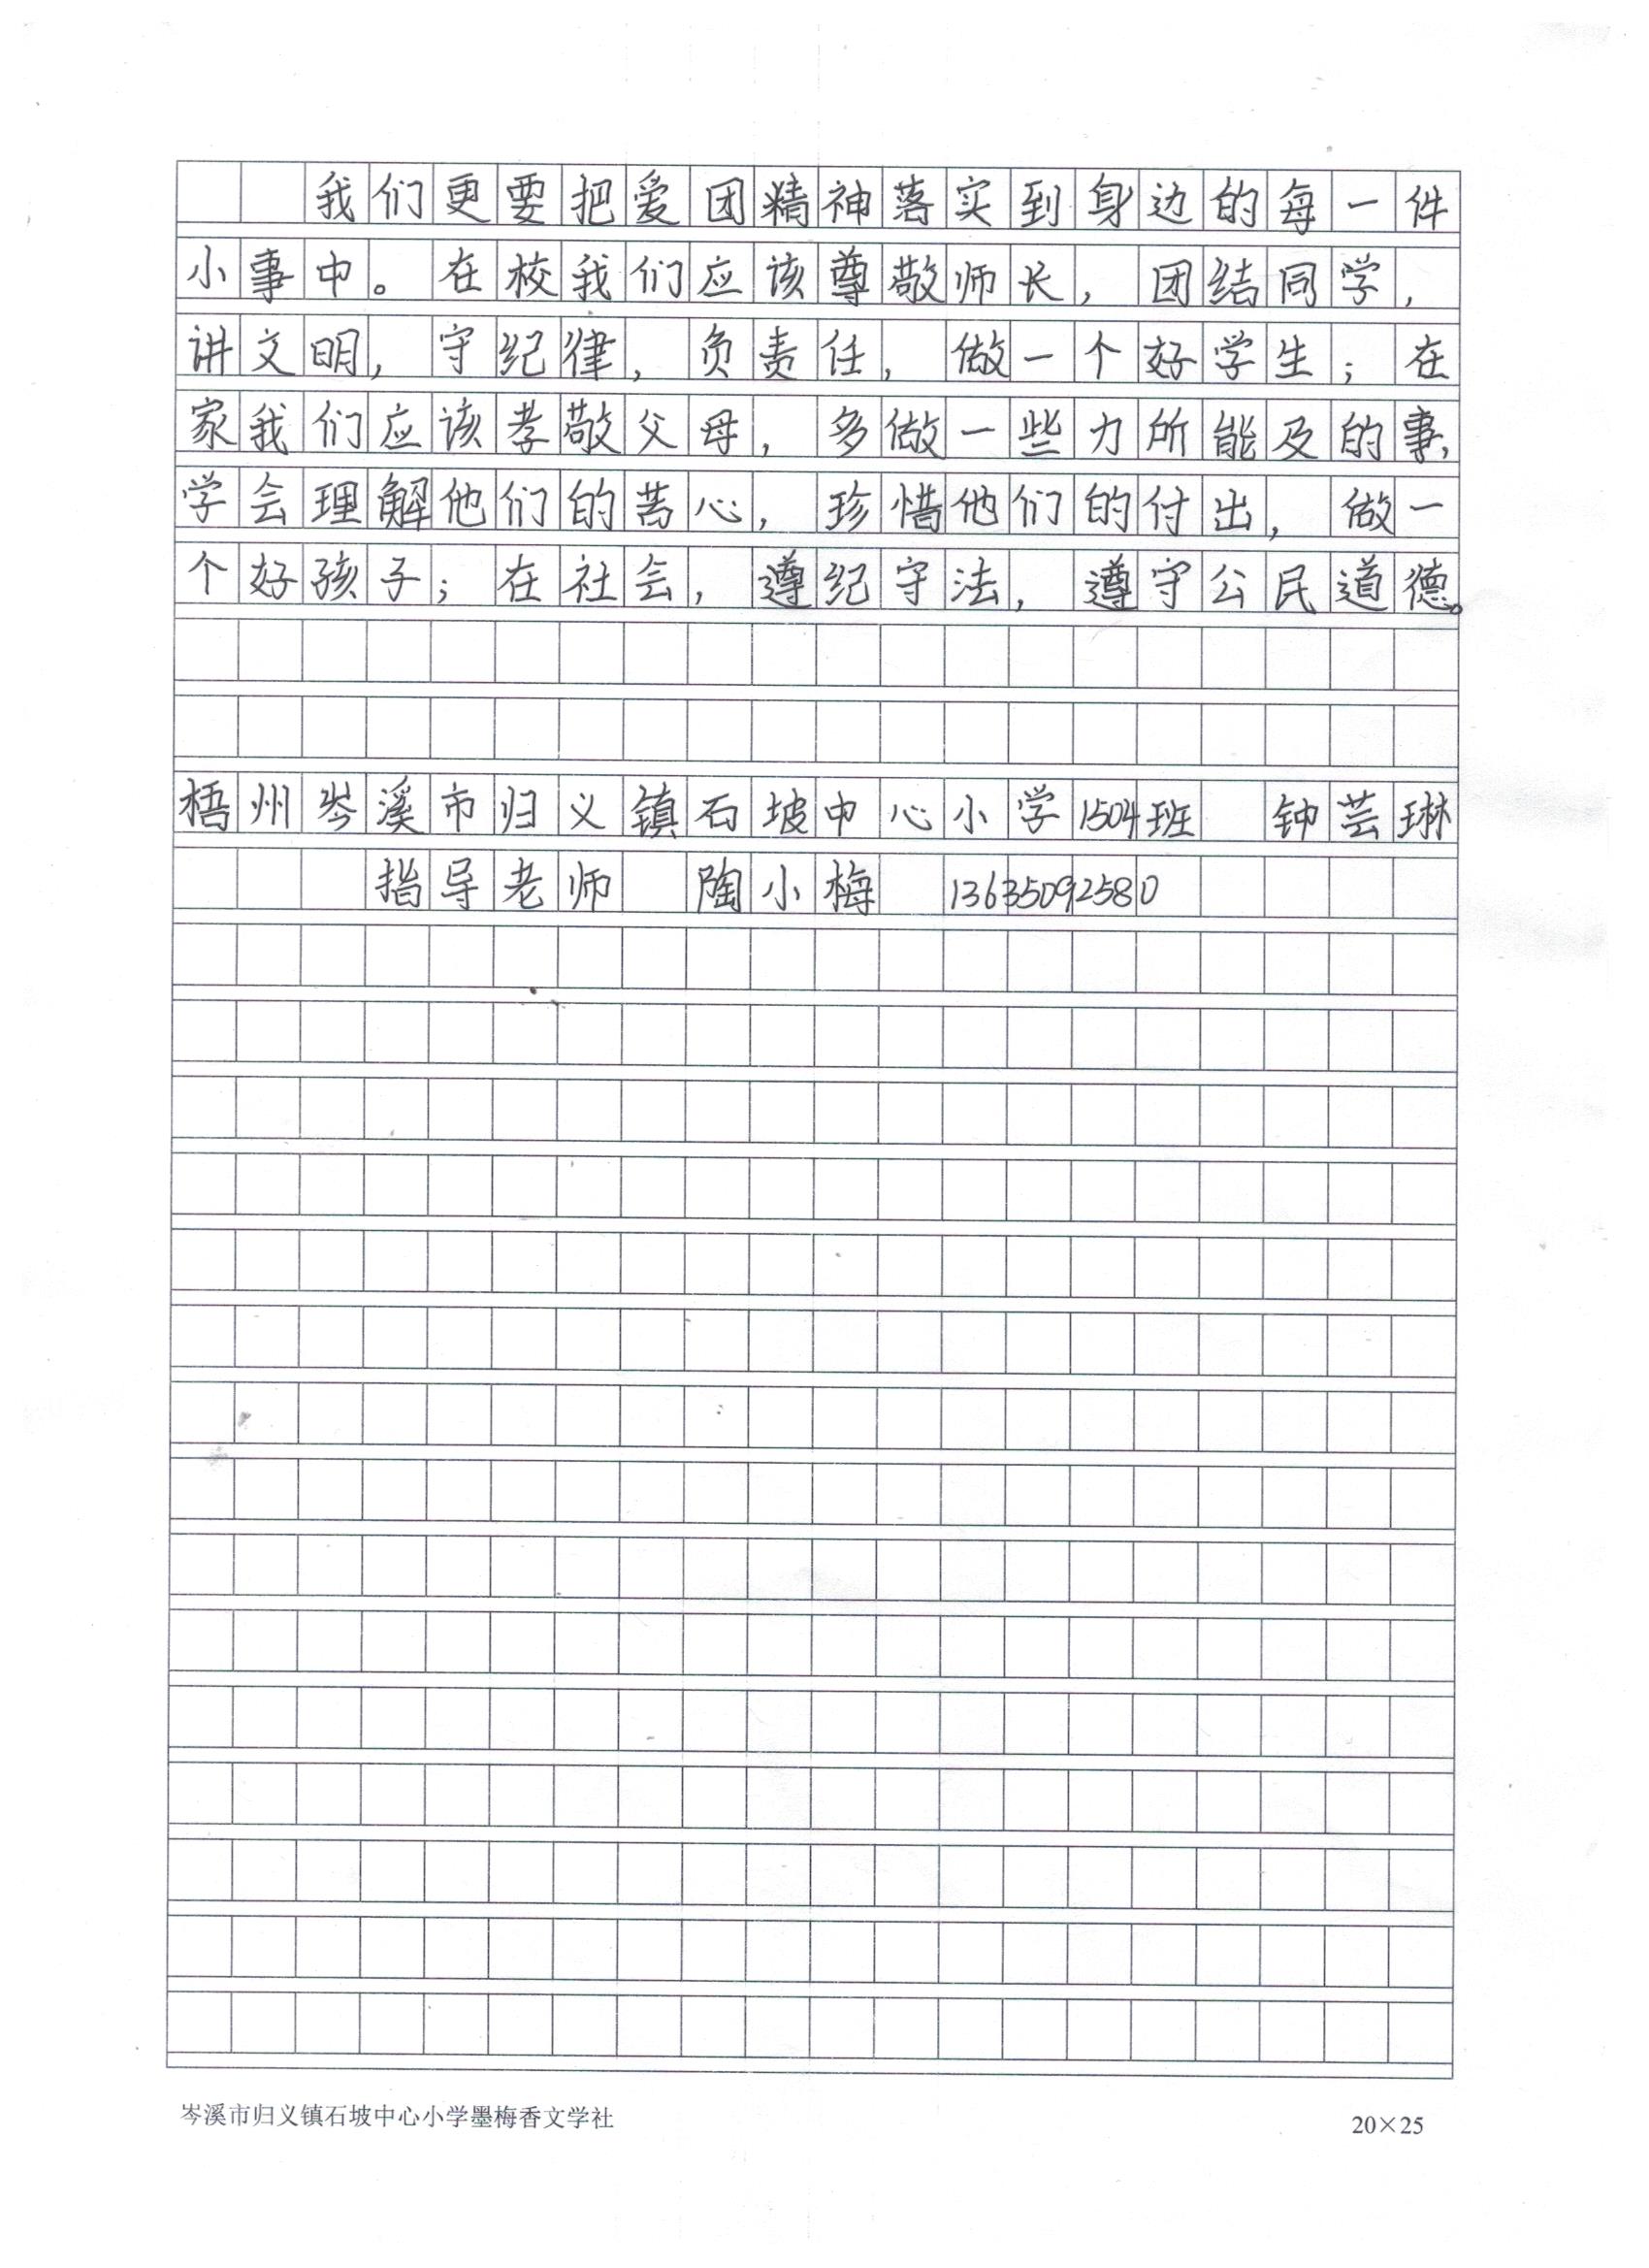 我们更要把爱团精神落实到身边的每一件
小事中。在校我们应该尊敬师长，团结同学，
讲文明，守纪律，负责任，做一个好学生；在
家我们应该孝敬父母，多做一些力所能及的事，
学会理解他们的苦心，珍惜他们的付出，做一
个好孩子；在社会，遵纪守法，遵守公民道德。
梧州岑溪市归义镇石坡中心小学1504班 钟芸琳
指导老师 陶小梅 13635092580
岑溪市归义镇石坡中心小学墨梅香文学社 20×25